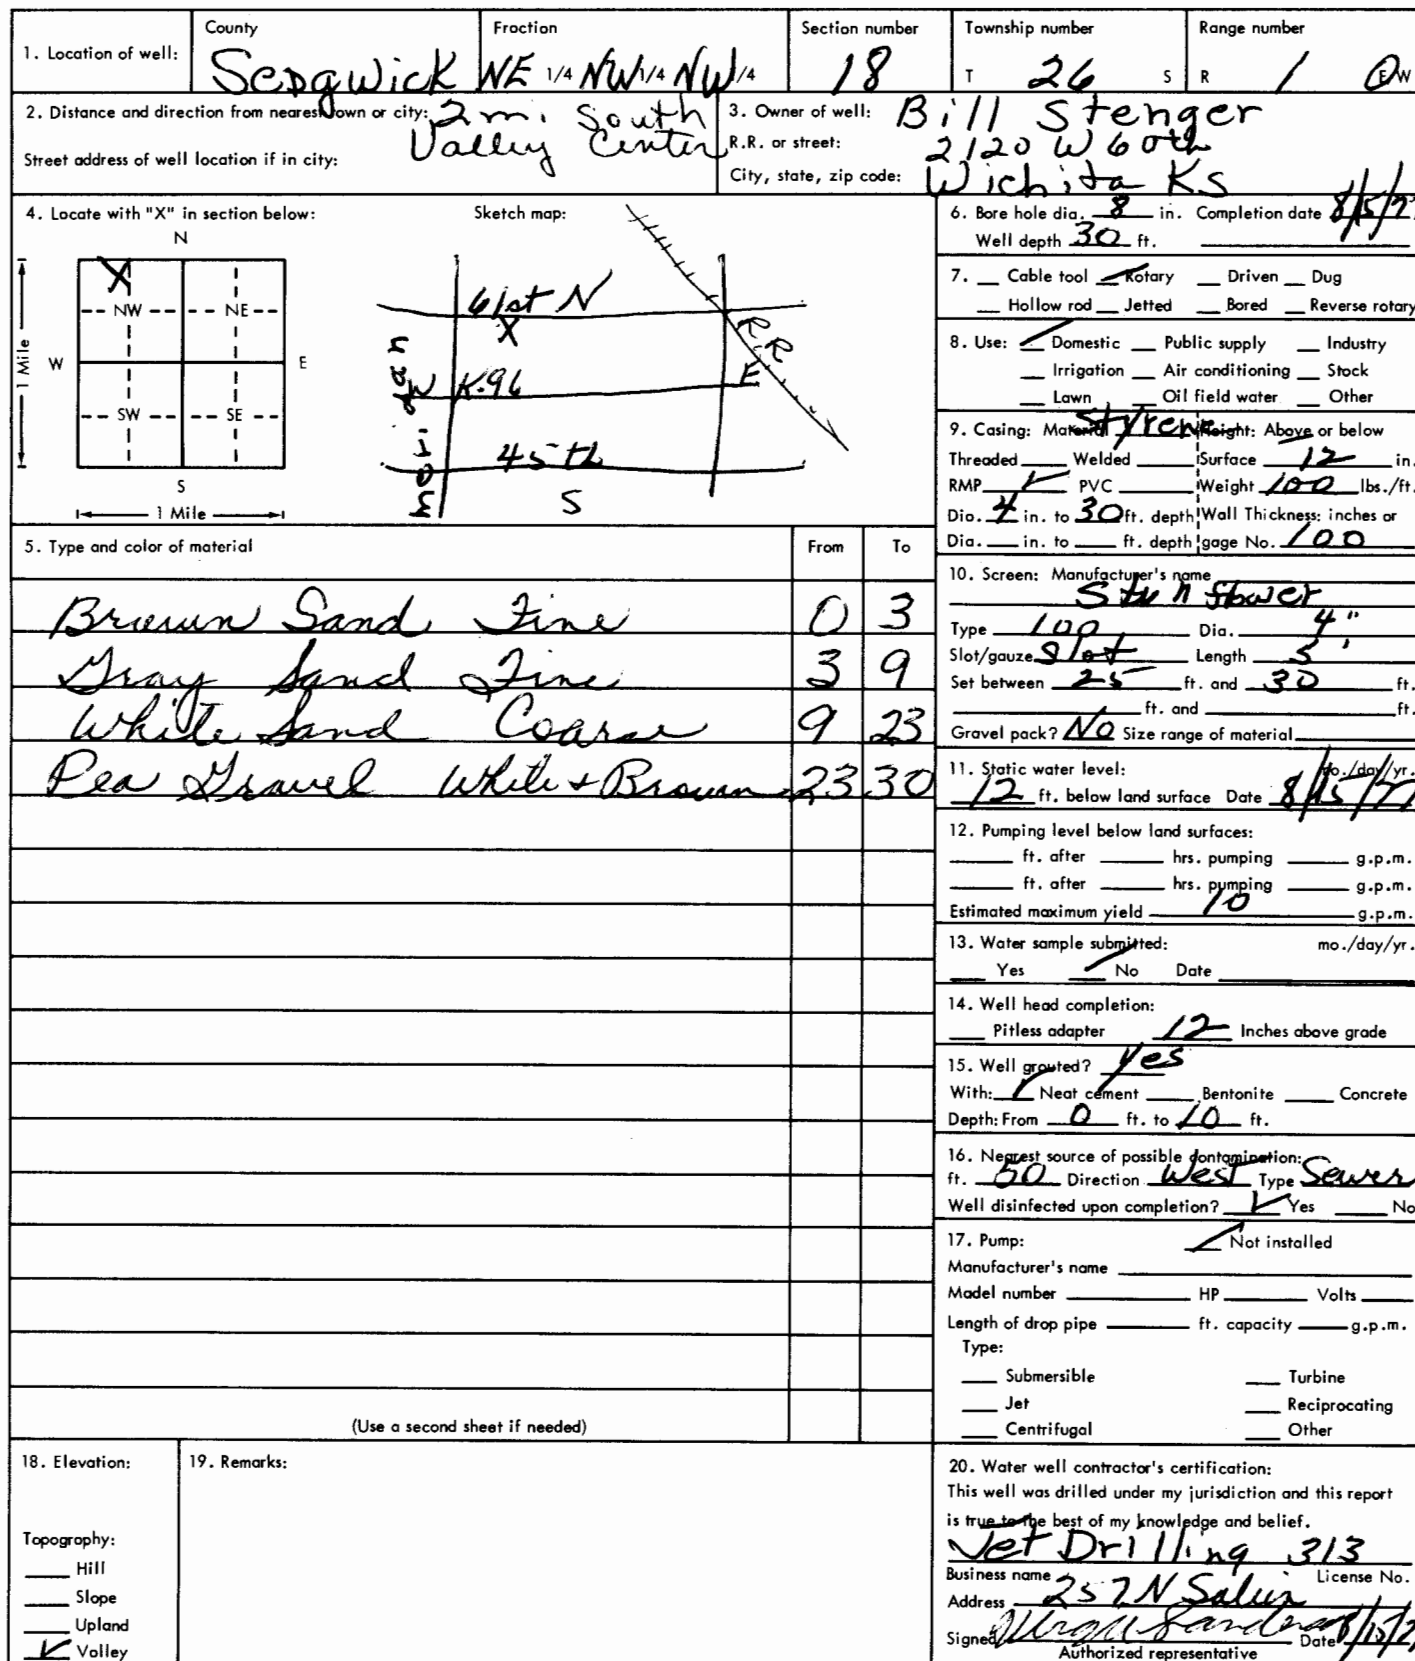 1. Location of well:
County
Sedgwick
Fraction
NE 1/4 NW 1/4 NW 1/4
Section number
18
Township number
T 26 S
Range number
R 1 E W
2. Distance and direction from nearest town or city: 2 mi South
Valley Center
Street address of well location if in city:
3. Owner of well: Bill Stenger
R.R. or street: 2120 W 60th
City, state, zip code: Wichita Ks
4. Locate with "X" in section below:
N
X
NW NE
W E
SW SE
S
1 Mile
1 Mile
Sketch map:
61st N
X
RR
W K-96 E
45th
S
6. Bore hole dia. 8 in. Completion date
Well depth 30 ft. 8/15/7
7. Cable tool Rotary Driven Dug
Hollow rod Jetted Bored Reverse rotary
8. Use: Domestic Public supply Industry
Irrigation Air conditioning Stock
Lawn Oil field water Other
9. Casing: Material Styrene Height: Above or below
Threaded Welded Surface 12 in.
RMP PVC Weight 100 lbs./ft.
Dia. 4 in. to 30 ft. depth Wall Thickness: inches or
Dia. in. to ft. depth gage No. 100
5. Type and color of material From To
Brown Sand Fine 0 3
Gray Sand Fine 3 9
White Sand Coarse 9 23
Pea Gravel White + Brown 23 30
(Use a second sheet if needed)
10. Screen: Manufacturer's name
Sunflower
Type 100 Dia. 4"
Slot/gauze Slot Length 5'
Set between 25 ft. and 30 ft.
ft. and ft.
Gravel pack? No Size range of material
11. Static water level: mo./day/yr.
12 ft. below land surface Date 8/15/77
12. Pumping level below land surfaces:
ft. after hrs. pumping g.p.m.
ft. after hrs. pumping g.p.m.
Estimated maximum yield 10 g.p.m.
13. Water sample submitted: mo./day/yr.
Yes No Date
14. Well head completion:
Pitless adapter 12 Inches above grade
15. Well grouted? yes
With: Neat cement Bentonite Concrete
Depth: From 0 ft. to 10 ft.
16. Nearest source of possible contamination:
ft. 50 Direction West Type Sewer
Well disinfected upon completion? Yes No
17. Pump: Not installed
Manufacturer's name
Model number HP Volts
Length of drop pipe ft. capacity g.p.m.
Type:
Submersible Turbine
Jet Reciprocating
Centrifugal Other
18. Elevation:
Topography:
Hill
Slope
Upland
Valley
19. Remarks:
20. Water well contractor's certification:
This well was drilled under my jurisdiction and this report
is true to the best of my knowledge and belief.
Jet Drilling 313
Business name License No.
Address 257 N
Signed Date 8/15/7
Authorized representative